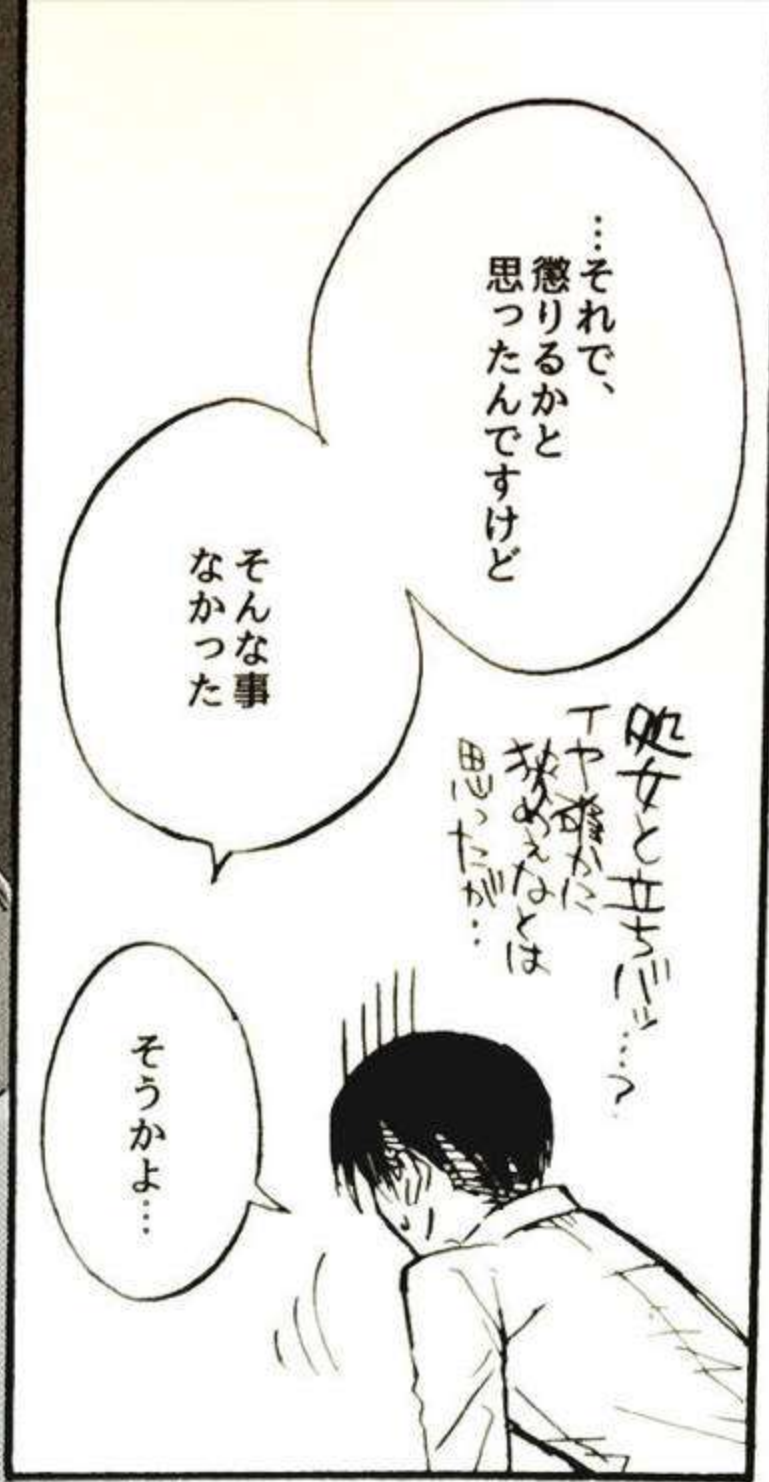 …それで、
懲りるかと
思ったんですけど
そんな事
なかった
処女と立ちバッ…?
イヤ確かに
狭めぇなとは
思ったが…
そうかよ…